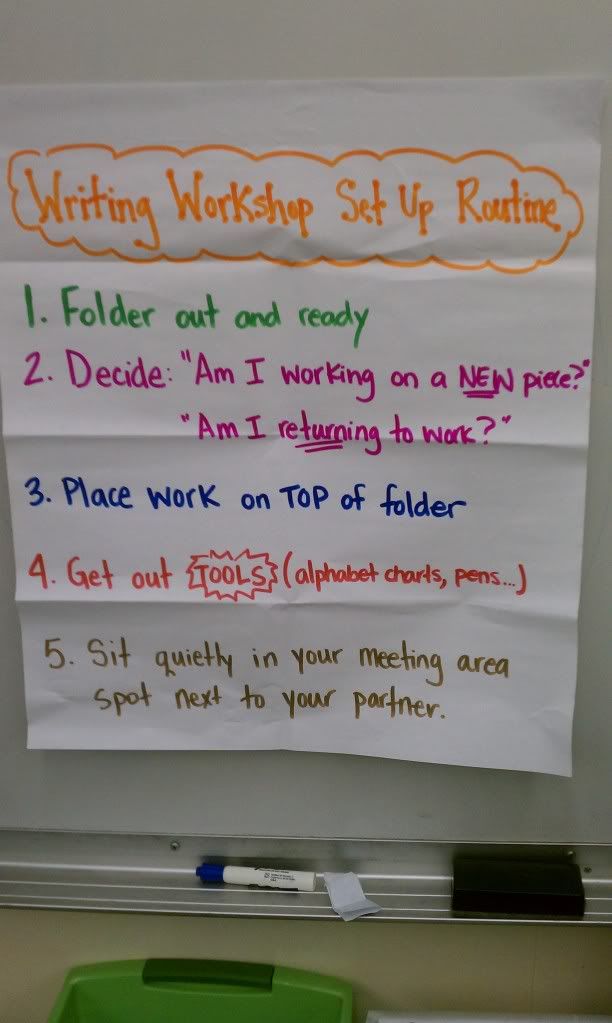 Writing Workshop Set Up Routine
1. Folder out and ready
2. Decide: "Am I working on a NEW piece?"
"Am I returning to work?"
3. Place work on TOP of folder
4. Get out TOOLS (alphabet charts, pens...)
5. Sit quietly in your meeting area
spot next to your partner.